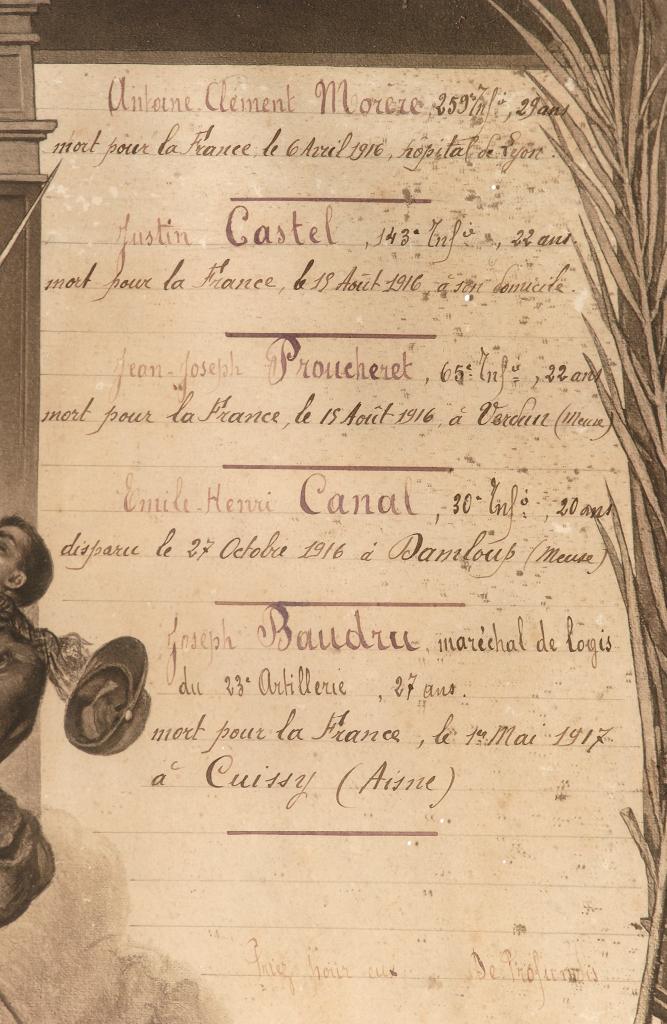 Antoine Clément Morère, 259e Infie, 29 ans
mort pour la France le 6 Avril 1916, hôpital de Lyon.
Justin Castel, 143e Infie, 22 ans.
mort pour la France, le 15 Août 1916, à son domicile.
Jean-Joseph Proucheret, 65e Infie, 22 ans
mort pour la France, le 15 Août 1916, à Verdun (Meuse)
Emile-Henri Canal, 30e Infie, 20 ans
disparu le 27 Octobre 1916 à Damloup (Meuse)
Joseph Baudru, maréchal de logis
du 23e Artillerie, 27 ans.
mort pour la France, le 1er Mai 1917
à Cuissy (Aisne)
Priez pour eux De Profundis